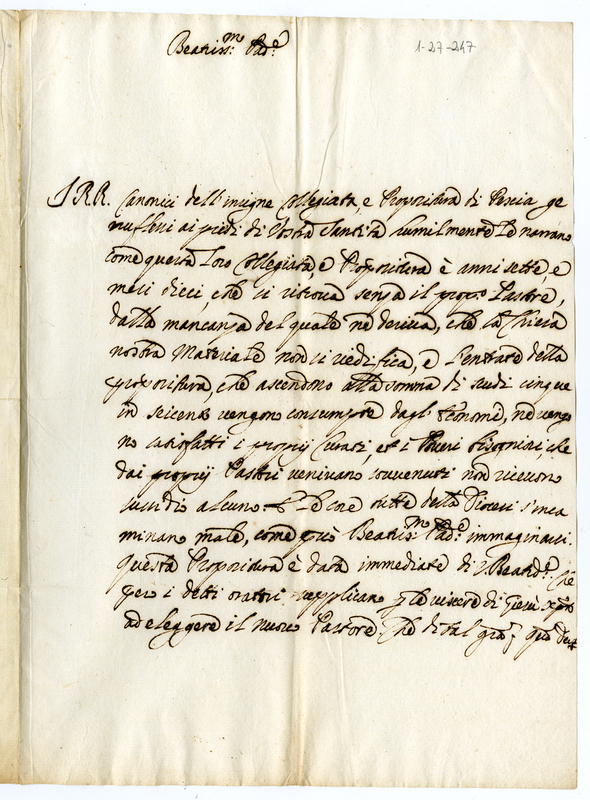 Beatiss:mo Pad:e
1-27-247
I RR. Canonici dell'insigne Collegiata, e Propositura di Pescia ge
nuflessi ai piedi di Vostra Santità humilmente Le narrano
come questa Loro Collegiata, e Propositura è anni sette, e
mesi dieci, che si ritrova senza il propo Pastore,
dalla mancanza del quale ne deriva, che la Chiesa
nostra Materiale non si riedifica, e l'entrate della
propositura, che ascendono alla somma di scudi cinque
in seicento vengon consumate dagl'Economi, ne vengo
no satisfatti i proprij Curati, et i Poveri bisognosi, che
dai proprij Pastori venivano sovvenuti non ricevono
sussidio alcuno. Le cose dette della Diocesi s'inca
minano male, come può Beatiss:mo Pad:e immaginarsi.
Questa Propositura è data immediate di V. Beatid:e Che
però i detti oratori supplicano p le viscere di Giesù Xpto
ad eleggere il nuovo Pastore, Che di tal gra;